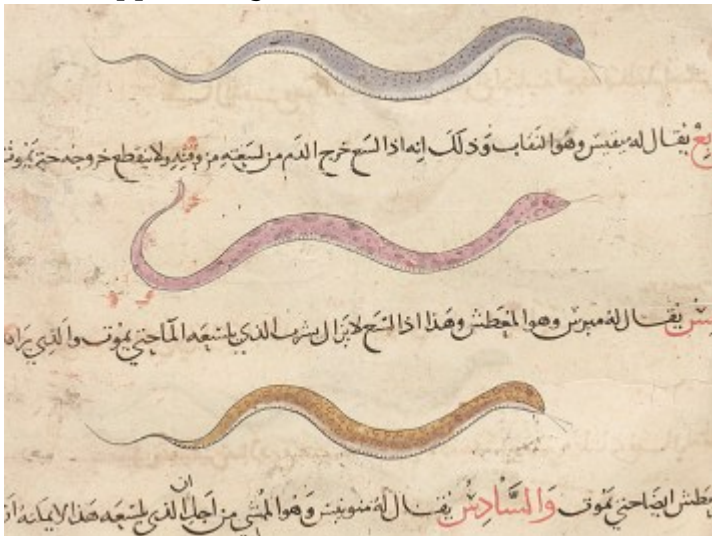 يقال له ميفيس وهو النقاب وذلك انه اذا لسع خرج الدم من لسعته من وقته ولا ينقطع خروجه حتى يموت
يقال له ميرس وهو المعطش وهذا اذا لسع لا يزال يشرب الذي يلسعه الما حتى يموت والذي
ايضا حتى يموت والسادس يقال له وهو من اجل ان الذي يلسعه هذا